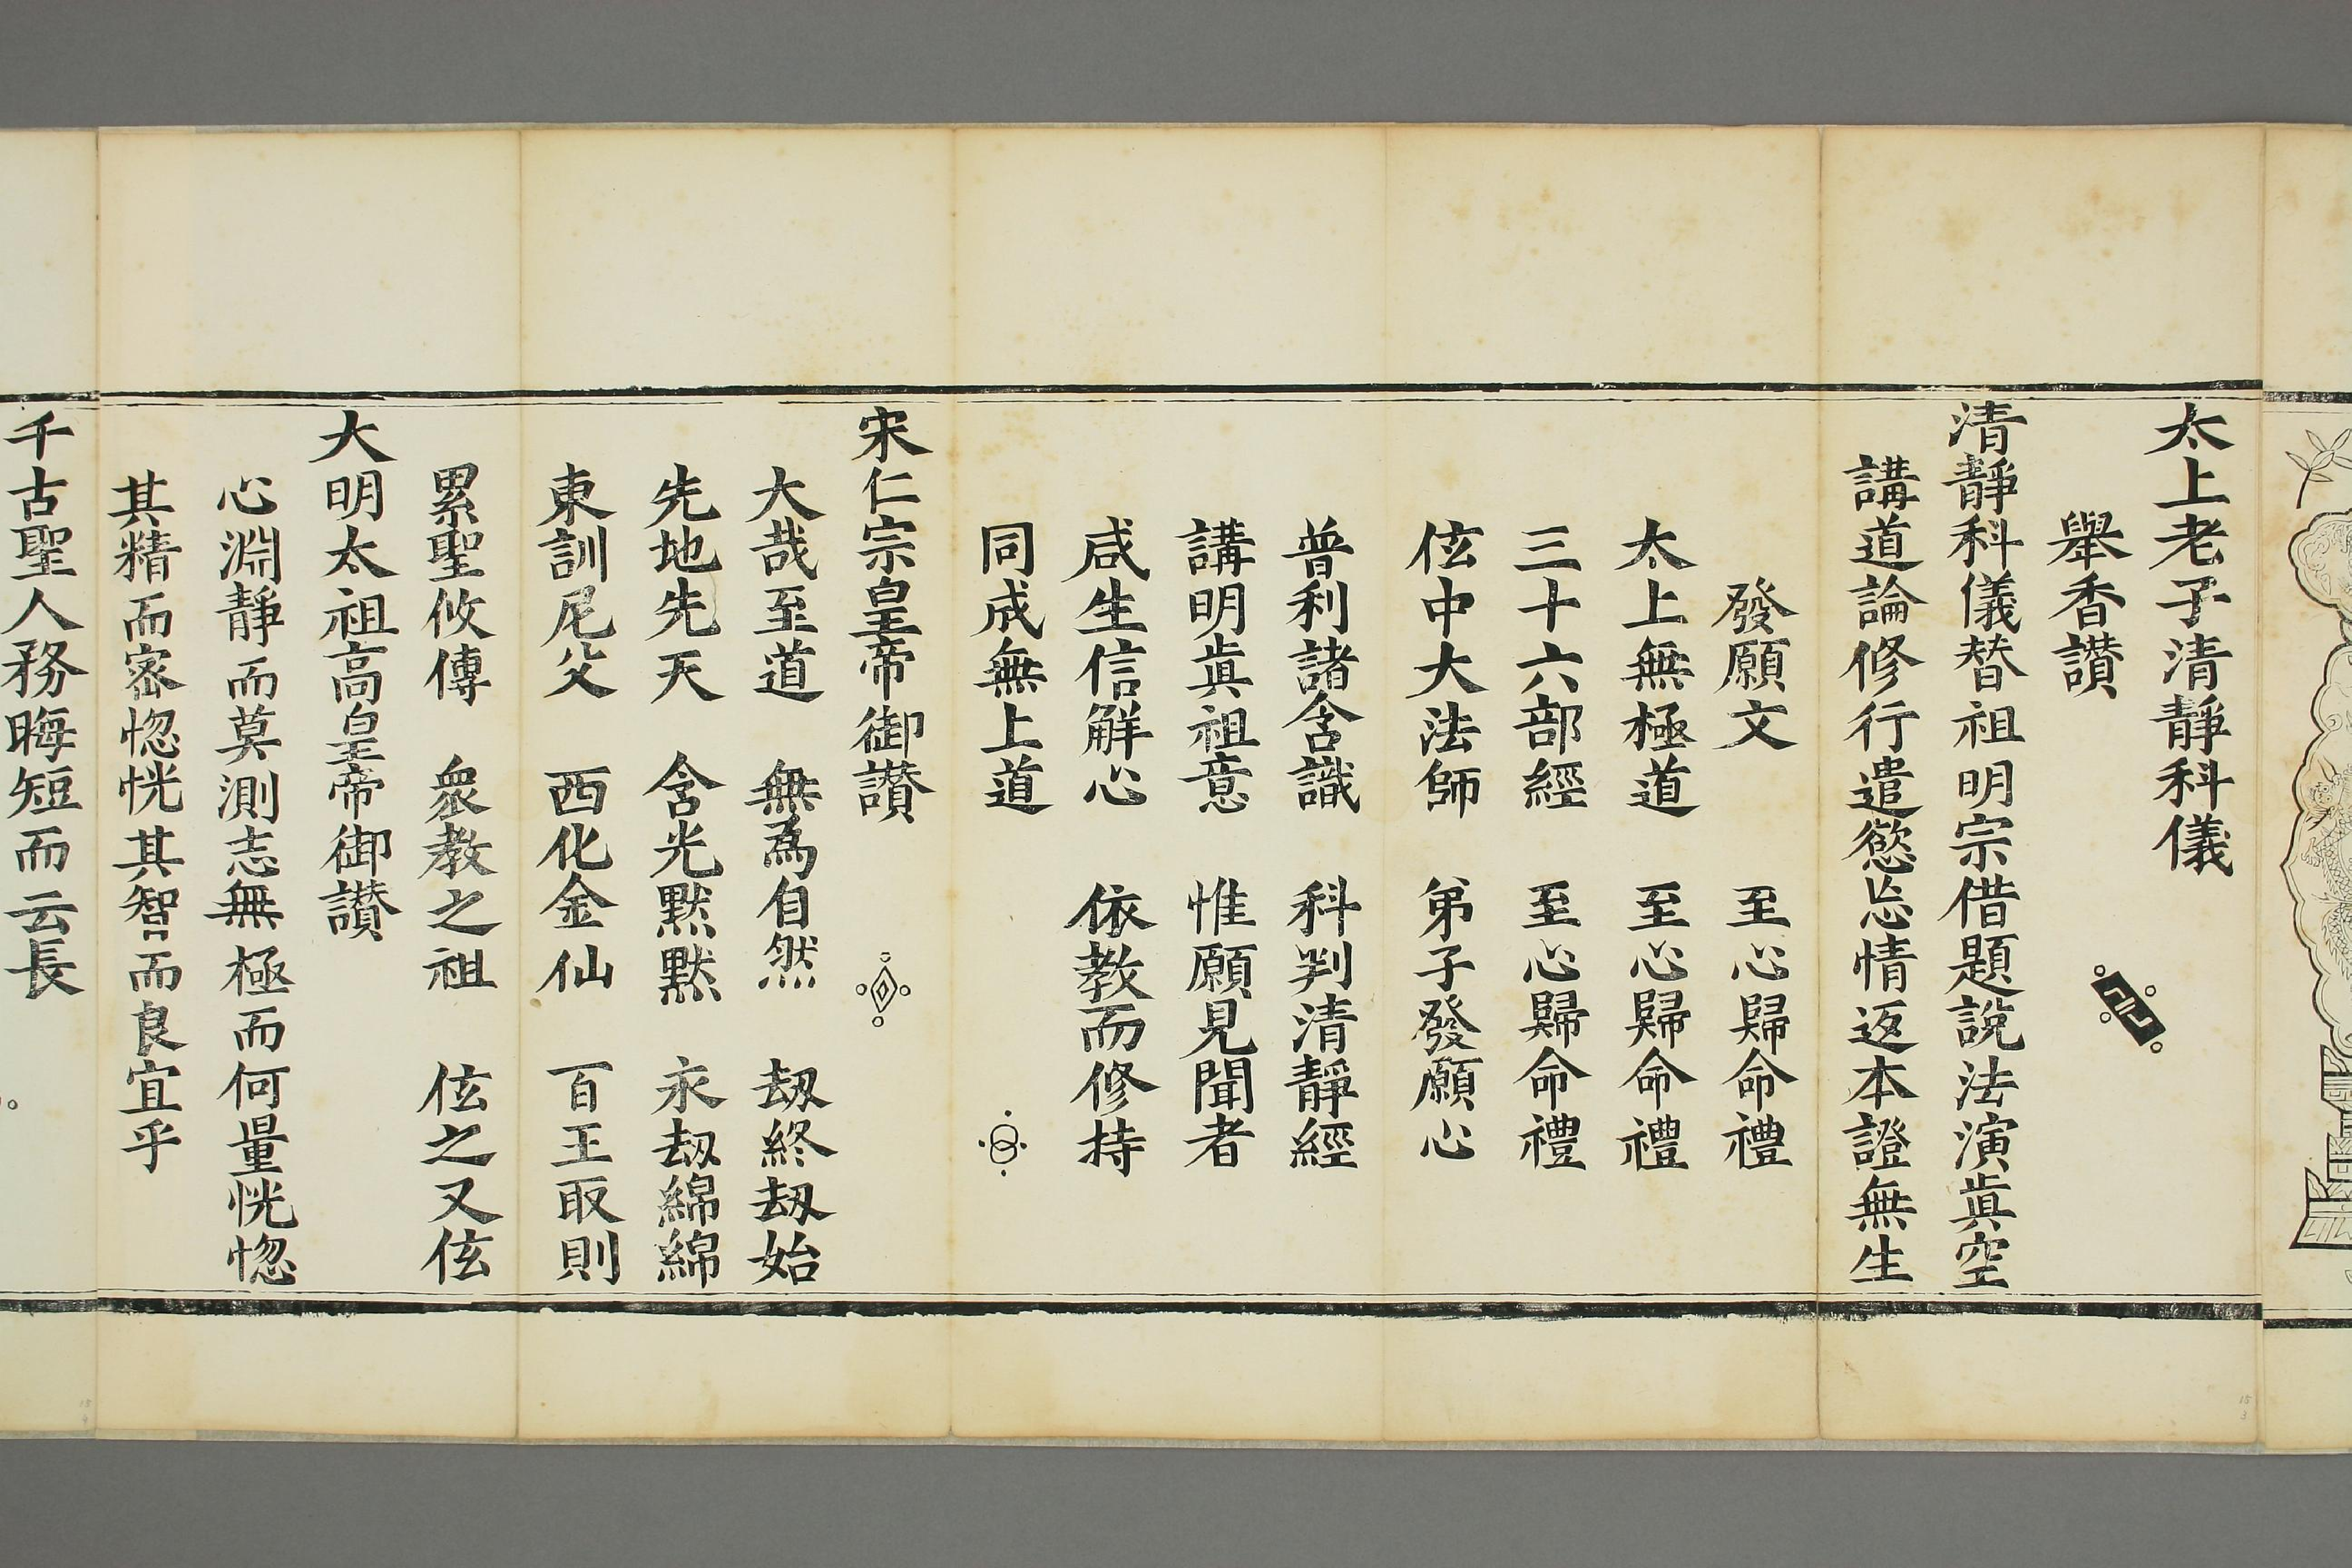 太上老子清靜科儀
舉香讚
清靜科儀替祖明宗借題說法演眞空
講道論修行遣慾忘情返本證無生
發願文　至心歸命禮
太上無極道　至心歸命禮
三十六部經　至心歸命禮
伭中大法師　弟子發願心
普利諸含識　科判清靜經
講明眞祖意　惟願見聞者
咸生信解心　依教而修持
同成無上道
宋仁宗皇帝御讚
大哉至道　無為自然　刼終刼始
先地先天　含光默默　永刼綿綿
東訓尼父　西化金仙　百王取則
累聖攸傳　衆教之祖　伭之又伭
大明太祖高皇帝御讚
心淵靜而莫測志無極而何量恍惚
其精而密惚恍其智而良宜乎
千古聖人務晦短而云長